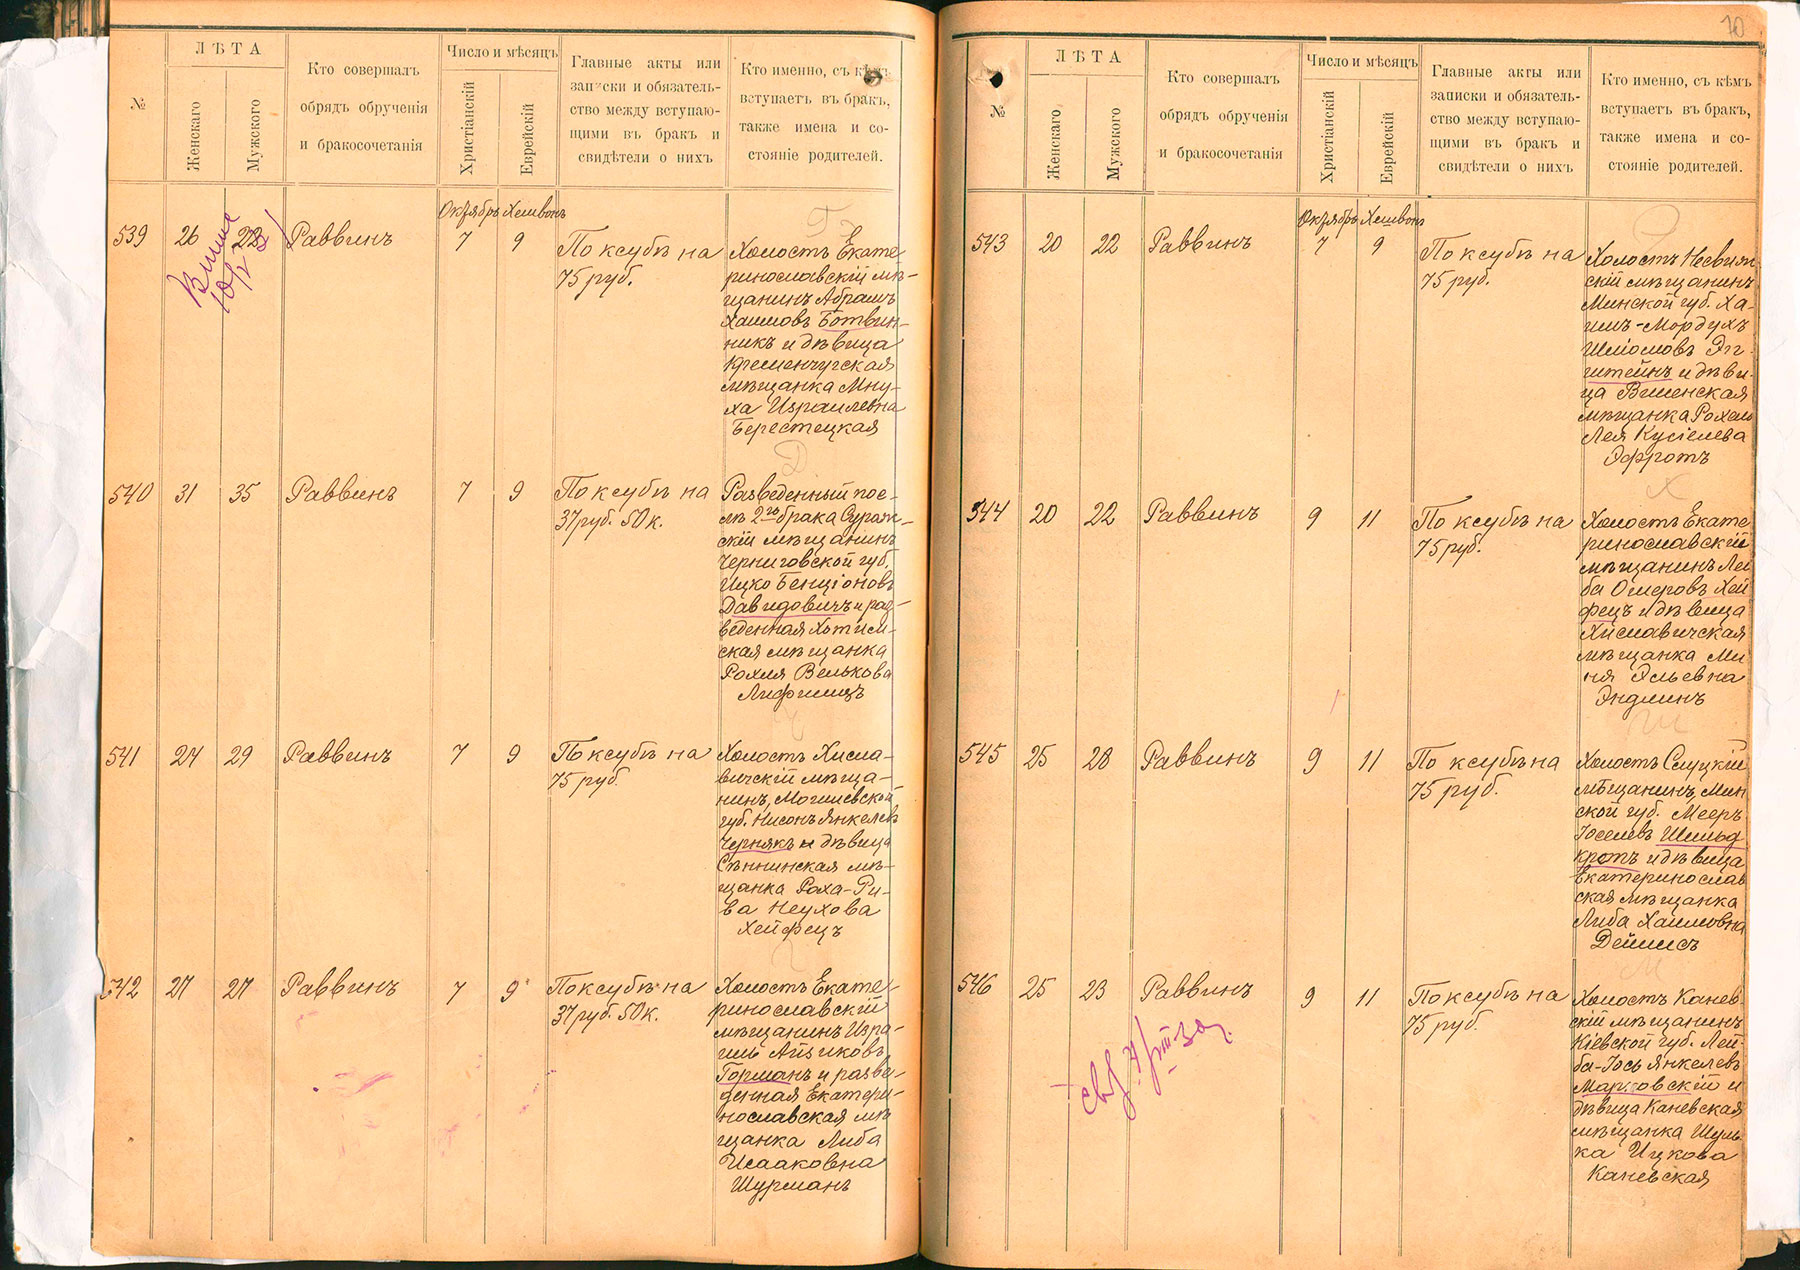 ЛѢТА
№
Женскаго
Мужского
Кто совершалъ
обрядъ обрученія
и бракосочетанія
Число и мѣсяцъ
Христіанскій
Еврейскій
Главные акты или
записки и обязатель-
ство между вступаю-
щими въ бракъ и
свидѣтели о нихъ
Кто именно, съ кѣмъ
вступаетъ въ бракъ,
также имена и со-
стояніе родителей.
Октябрь Хешвонъ
539 26 Раввинъ 7 9
По ксубѣ на
75 руб.
Холостъ Екате-
ринославскій мѣ-
щанинъ Абрамъ
Хаимовъ Ботвин-
никъ и дѣвица
Кременчугская
мѣщанка Мну-
ха Израилевна
Берестецкая
540 31 35 Раввинъ 7 9
По ксубѣ на
37 руб. 50 к.
Разведенный пос-
лѣ 2го брака Сураж-
скій мѣщанинъ
Черниговской губ.
Ицко Бенціоновъ
Давидовичъ и раз-
веденная Хотим-
ская мѣщанка
Рохля Велькова
Лифшицъ
541 27 29 Раввинъ 7 9
По ксубѣ на
75 руб.
Холостъ Хисла-
вичскій мѣща-
нинъ, Могилевской
губ. Нисонъ Янкелевъ
Чернякъ и дѣвица
Сѣннинская мѣ-
щанка Раха-Ри-
ва Неухова
Хейфецъ
542 27 27 Раввинъ 7 9
По ксубѣ на
37 руб. 50 к.
Холостъ Екате-
ринославскій
мѣщанинъ Изра-
иль Айзиковъ
Горманъ и разве-
денная Екатери-
нославская мѣ-
щанка Либа
Исааковна
Шурманъ
10
ЛѢТА
№
Женскаго
Мужского
Кто совершалъ
обрядъ обрученія
и бракосочетанія
Число и мѣсяцъ
Христіанскій
Еврейскій
Главные акты или
записки и обязатель-
ство между вступаю-
щими въ бракъ и
свидѣтели о нихъ
Кто именно, съ кѣмъ
вступаетъ въ бракъ,
также имена и со-
стояніе родителей.
Октябрь Хешвонъ
543 20 22 Раввинъ 7 9
По ксубѣ на
75 руб.
Холостъ Несвиж-
скій мѣщанинъ
Минской губ. Ха-
имъ-Мордухъ
Шліомовъ Эп-
штейнъ и дѣви-
ца Виленская
мѣщанка Рохель
Лея Кусіелева
Эфротъ
544 20 22 Раввинъ 9 11
По ксубѣ на
75 руб.
Холостъ Екате-
ринославскій
мѣщанинъ Лей
ба Ошеровъ Хей
фецъ и дѣвица
Хиславичская
мѣщанка Ми
ня Эльевна
Эндлинъ
545 25 28 Раввинъ 9 11
По ксубѣ на
75 руб.
Холостъ Слуцкій
мѣщанинъ, Мин
ской губ. Мееръ
Іоселевъ Шильд
кротъ и дѣвица
Екатеринослав
ская мѣщанка
Либа Хаимовна
546 25 23 Раввинъ 9 11
По ксубѣ на
75 руб.
Холостъ Канев-
скій мѣщанинъ
Кіевской губ. Лей-
ба-Іось Янкелевъ
Марковскій и
дѣвица Каневская
мѣщанка Шуль-
ка Ицкова
Каневская